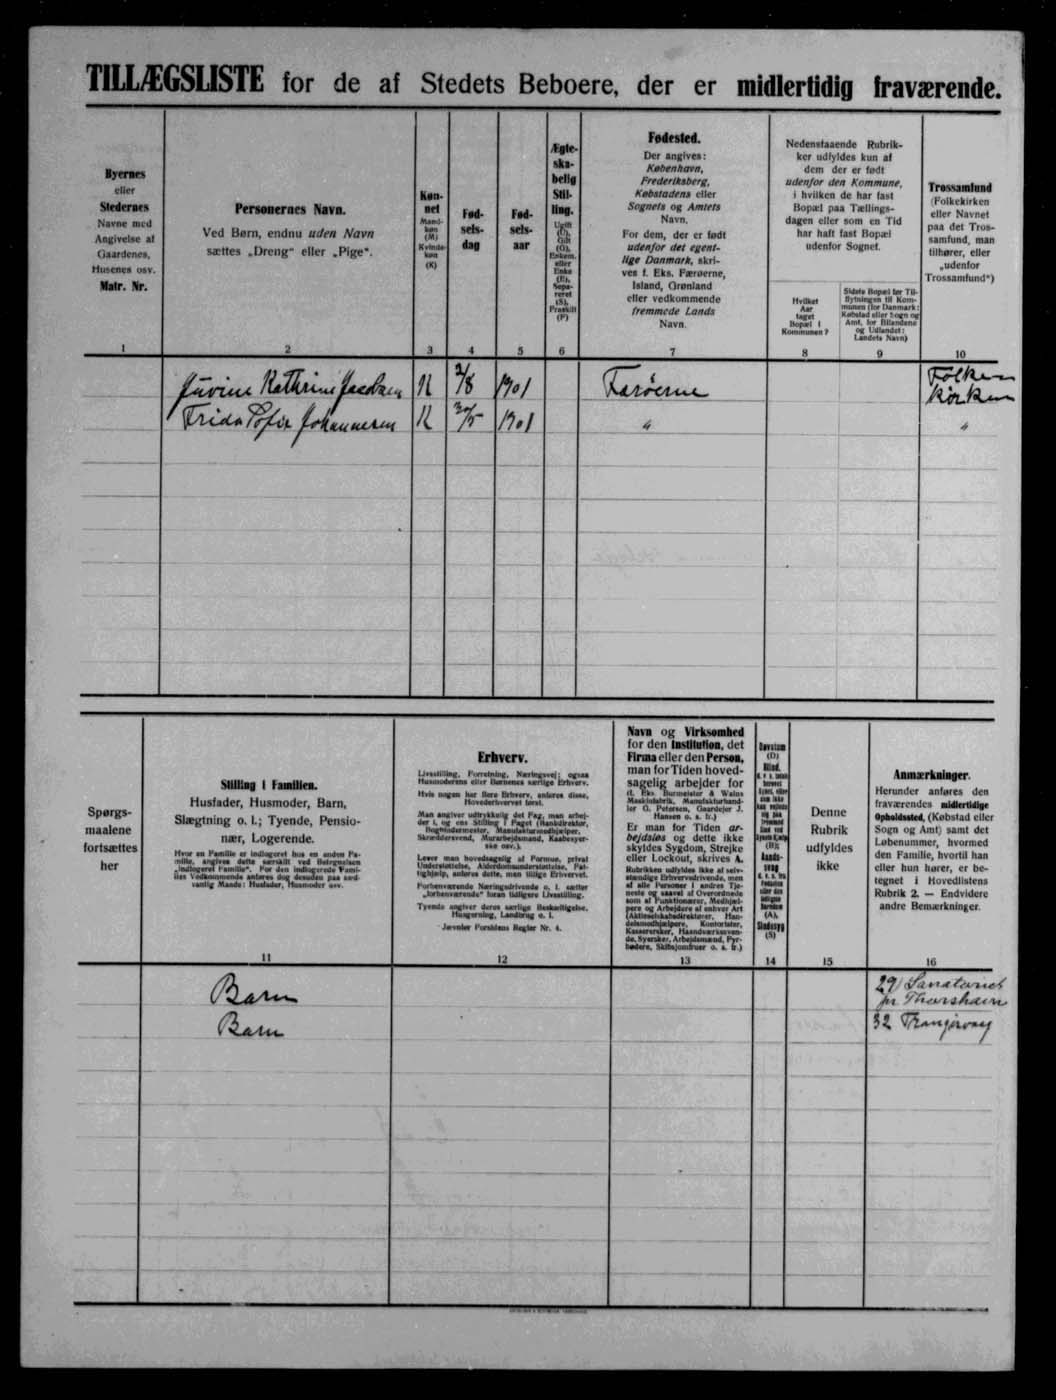 TILLÆGSLISTE for de af Stedets Beboere, der er midlertidig fraværende.
Byernes
eller
Stedernes
Navne med
Angivelse af
Gaardenes,
Husenes osv.
Matr. Nr.
Personernes Navn.
Ved Børn, endnu uden Navn
sættes „Dreng“ eller „Pige“.
Køn-
net
Mand-
køn
(M)
Kvinde-
køn
(K)
Fød-
sels-
dag
Fød-
sels-
aar
Ægte-
ska-
belig
Stil-
ling.
Ugift
(U),
Gift
(G),
Enkem.
eller
Enke
(E),
Sepa-
reret
(S),
Fraskilt
(F)
Fødested.
Der angives:
København,
Frederiksberg,
Købstadens eller
Sognets og Amtets
Navn.
For dem, der er født
udenfor det egent-
lige Danmark, skri-
ves f. Eks. Færøerne,
Island, Grønland
eller vedkommende
fremmede Lands
Navn.
Nedenstaaende Rubrik-
ker udfyldes kun af
dem der er født
udenfor den Kommune,
i hvilken de har fast
Bopæl paa Tællings-
dagen eller som en Tid
har haft fast Bopæl
udenfor Sognet.
Hvilket
Aar
taget
Bopæl i
Kommunen?
Sidste Bopæl før Til-
flytningen til Kom-
munen (for Danmark:
Købstad eller Sogn og
Amt, for Bilandene
og Udlandet:
Landets Navn)
Trossamfund
(Folkekirken
eller Navnet
paa det Tros-
samfund, man
tilhører, eller
„udenfor
Trossamfund“)
1 2 3 4 5 6 7 8 9 10
Juvine Kathrine Jacobsen K 2/8 1901 Færöerne Folken
kirken
Frida Sofie Johannesen K 20/5 1901 " "
Spørgs-
maalene
fortsættes
her
Stilling i Familien.
Husfader, Husmoder, Barn,
Slægtning o. l.; Tyende, Pensio-
nær, Logerende.
Hvor en Familie er indlogeret hos en anden Fa-
milie, angives dette særskilt ved Betegnelsen
„indlogeret Familie“. For den indlogerede Fami-
lies Vedkommende anføres dog desuden paa sæd-
vanlig Maade: Husfader, Husmoder osv.
Erhverv.
Livsstilling, Forretning, Næringsvej; ogsaa
Husmoderens eller Børnenes særlige Erhverv.
Hvis nogen har flere Erhverv, anføres disse,
Hovederhvervet først.
Man angiver udtrykkelig det Fag, man arbej-
der i, og ens Stilling i Faget (Bankdirektør,
Bogbindermester, Manufakturmedhjælper,
Skræddersvend, Murarbejdsmand, Kaabesyer-
ske osv.).
Lever man hovedsagelig af Formue, privat
Understøttelse, Alderdomsunderstøttelse, Fat-
tighjælp, anføres dette, men tillige Erhvervet.
Forhenværende Næringsdrivende o. l. sætter
„forhenværende“ foran tidligere Livsstilling.
Tyende angiver deres særlige Beskæftigelse,
Husgerning, Landbrug o. l.
Jævnfør Forsidens Regler Nr. 4.
Navn og Virksomhed
for den Institution, det
Firma eller den Person,
man for Tiden hoved-
sagelig arbejder for
(f. Eks. Burmeister & Wains
Maskinfabrik, Manufakturhand-
ler G. Petersen, Gaardejer J.
Hansen o. s. fr.)
Er man for Tiden ar-
bejdsløs og dette ikke
skyldes Sygdom, Strejke
eller Lockout, skrives A.
Rubrikken udfyldes ikke af selv-
stændige Erhvervsdrivende, men
af alle Personer i andres Tje-
neste og saavel af Overordnede
som af Funktionærer, Medhjæl-
pere og Arbejdere af enhver Art
(Aktieselskabsdirektører, Han-
delsmedhjælpere, Kontorister,
Kasserersker, Haandværkssven-
de, Syersker, Arbejdsmænd, Fyr-
bødere, Skibsjomfruer o. s. fr.)
Døvstum
(D)
Blind,
(B);
Aands-
svag
(A),
Sindssyg
(S)
Denne
Rubrik
udfyldes
ikke
Anmærkninger.
Herunder anføres den
fraværendes midlertidige
Opholdssted, (Købstad eller
Sogn og Amt) samt det
Løbenummer, hvormed
den Familie, hvortil han
eller hun hører, er be-
tegnet i Hovedlistens
Rubrik 2. — Endvidere
andre Bemærkninger.
11 12 13 14 15 16
Barn 29) Sanatoriet
pr. Thorshavn
Barn 32 Trangisvaag